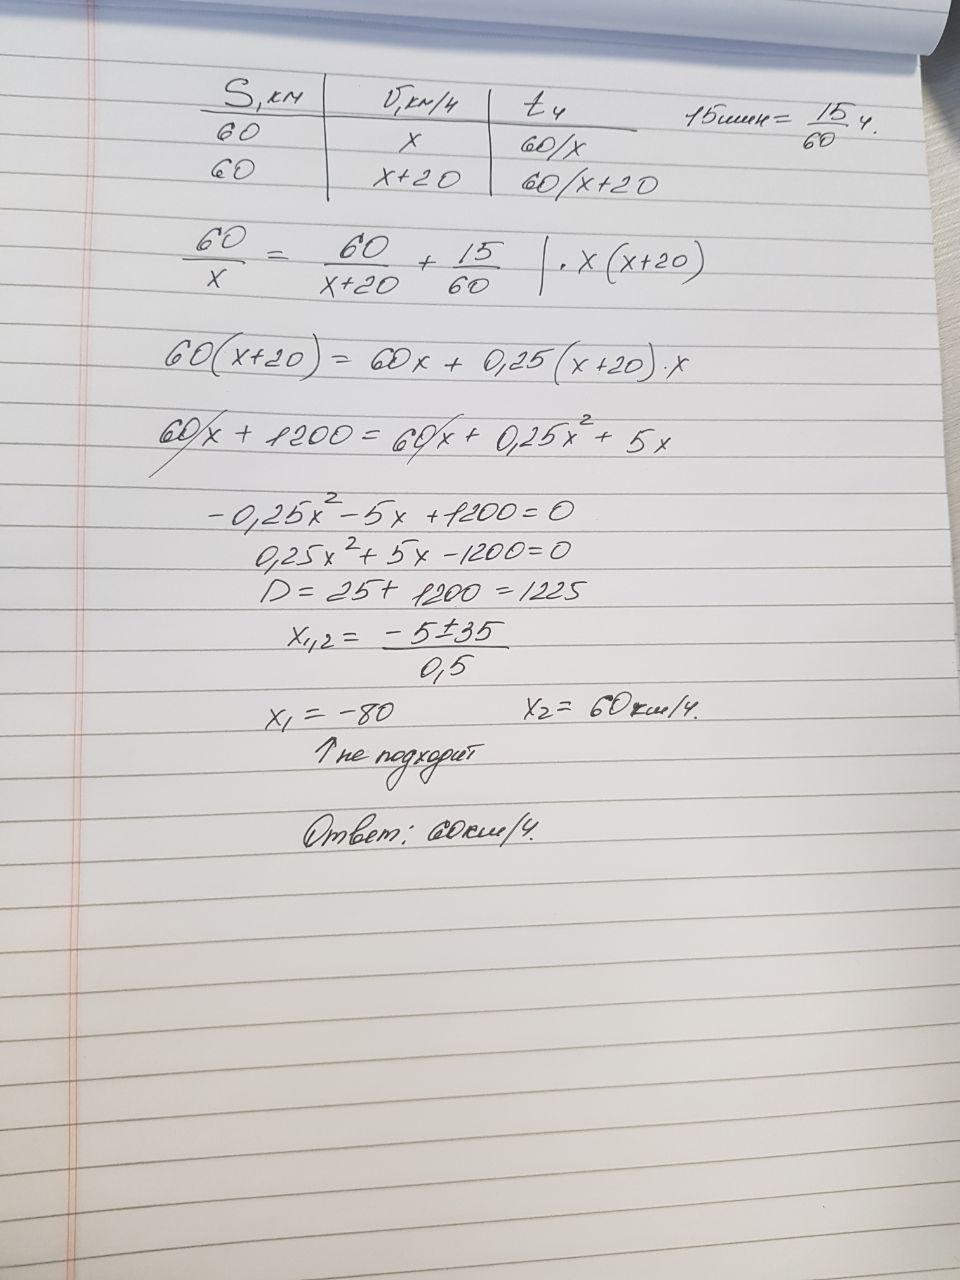 S, км | v, км/ч | t ч 15 мин = 15/60 ч.
60 | x | 60/x
60 | x+20 | 60/x+20
60/x = 60/(x+20) + 15/60 | · x(x+20)
60(x+20) = 60x + 0,25(x+20)·x
60x + 1200 = 60x + 0,25x² + 5x
-0,25x² - 5x + 1200 = 0
0,25x² + 5x - 1200 = 0
D = 25 + 1200 = 1225
x₁,₂ = (-5 ± 35)/0,5
x₁ = -80 x₂ = 60 км/ч.
↑ не подходит
Ответ: 60 км/ч.